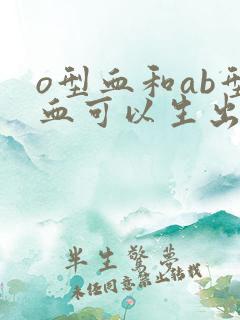 o型血和ab型
血可以生出
半生驚夢
未任同意禁止转载